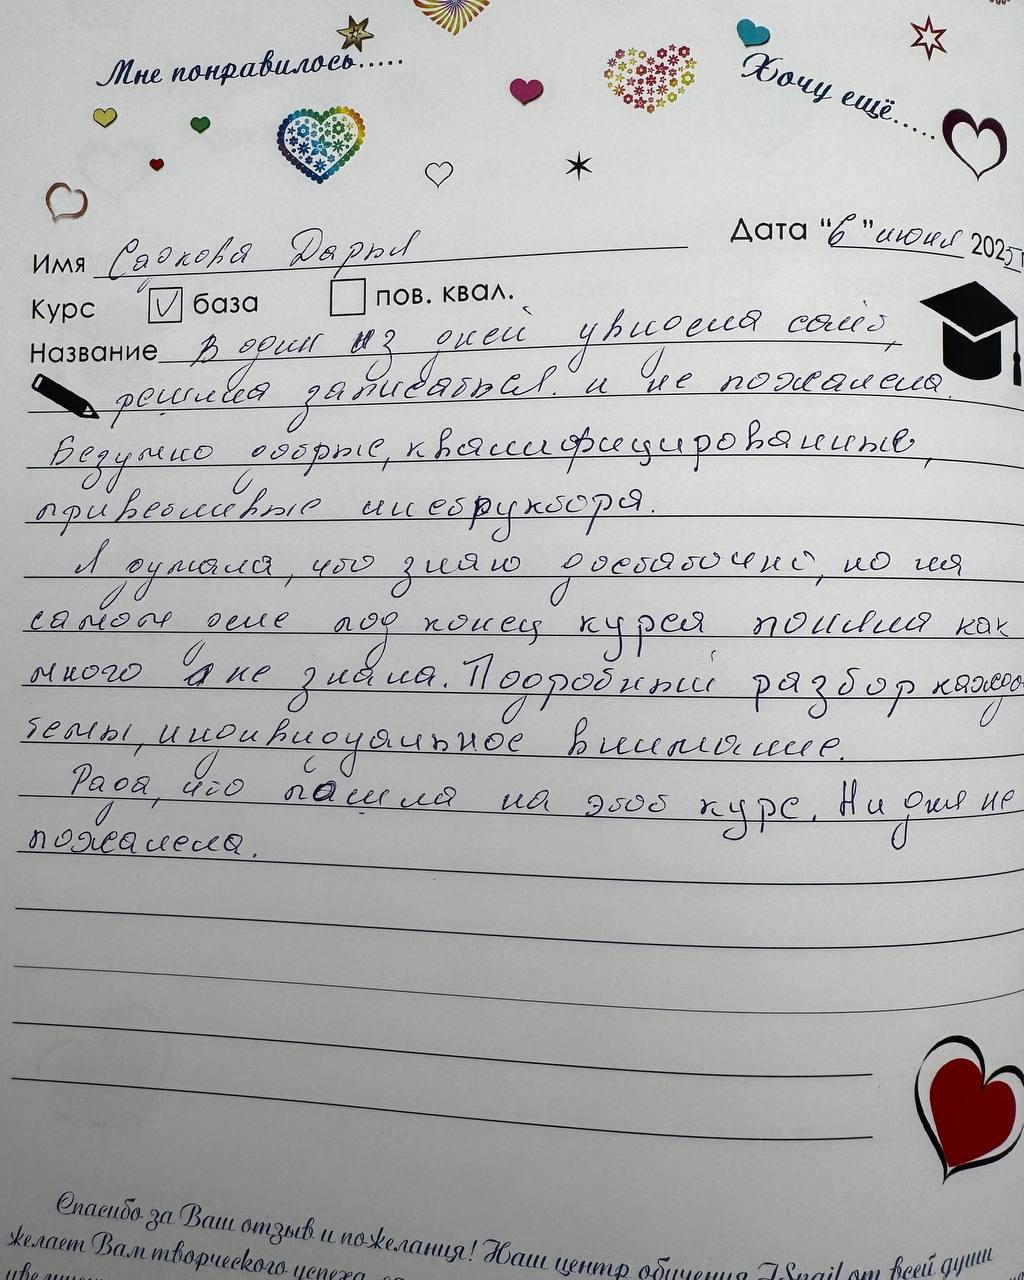 Мне понравилось.....
Хочу ещё.....
Имя Садкова Дарья
Дата "6" июня 2025
Курс ☑ база ☐ пов. квал.
Название в один из дней увидела
решила записаться. и не пожалела.
Безумно добрые, квалифицированные,
приветливые инструктора.
Я думала, что знаю достаточно, но на
самом деле под конец курса поняла как
много я не знала. Подробный разбор каждо
темы, индивидуальное внимание.
Рада, что пошла на этот курс. Ни дня не
пожалела.
Спасибо за Ваш отзыв и пожелания! Наш центр обучения JSnail от всей души
желает Вам творческого успеха,